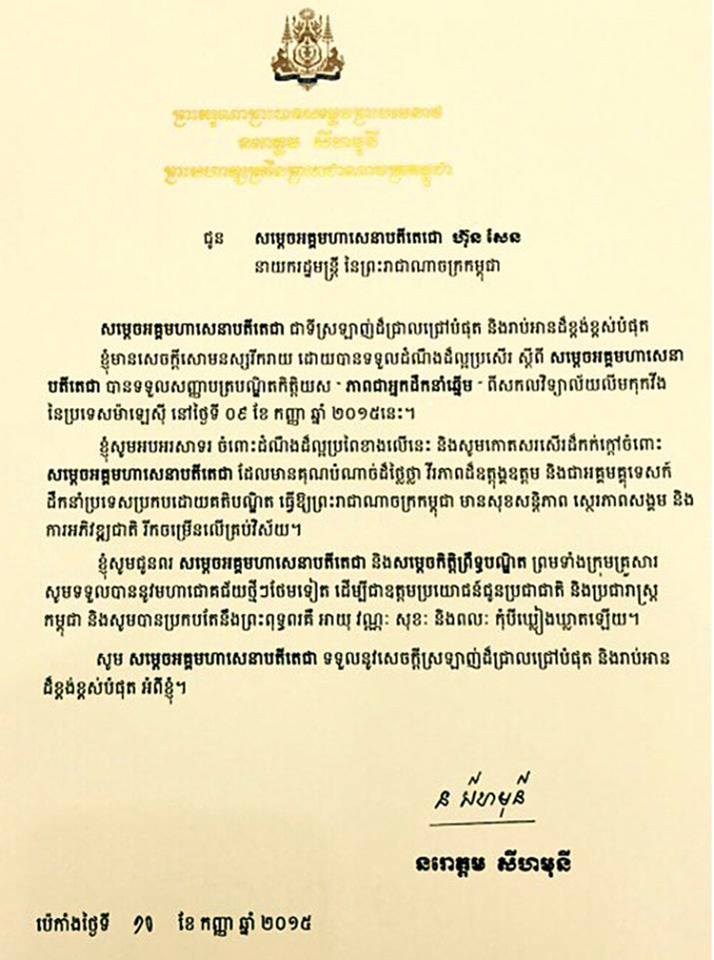 ព្រះករុណាព្រះបាទសម្តេចព្រះបរមនាថ
នរោត្តម សីហមុនី
ព្រះមហាក្សត្រនៃព្រះរាជាណាចក្រកម្ពុជា
ជូន សម្តេចអគ្គមហាសេនាបតីតេជោ ហ៊ុន សែន
នាយករដ្ឋមន្ត្រី នៃព្រះរាជាណាចក្រកម្ពុជា
សម្តេចអគ្គមហាសេនាបតីតេជោ ជាទីស្រឡាញ់ដ៏ជ្រាលជ្រៅបំផុត និងរាប់អានដ៏ខ្ពង់ខ្ពស់បំផុត
ខ្ញុំមានសេចក្តីសោមនស្សរីករាយ ដោយបានទទួលដំណឹងដ៏ល្អប្រសើរ ស្តីពី សម្តេចអគ្គមហាសេនា
បតីតេជោ បានទទួលសញ្ញាបត្របណ្ឌិតកិត្តិយស - ភាពជាអ្នកដឹកនាំឆ្នើម - ពីសកលវិទ្យាល័យលីមកុកវីង
នៃប្រទេសម៉ាឡេស៊ី នៅថ្ងៃទី ០៩ ខែ កញ្ញា ឆ្នាំ ២០១៥នេះ។
ខ្ញុំសូមអបអរសាទរ ចំពោះដំណឹងដ៏ល្អប្រពៃខាងលើនេះ និងសូមកោតសរសើរដ៏កក់ក្តៅចំពោះ
សម្តេចអគ្គមហាសេនាបតីតេជោ ដែលមានគុណបំណាច់ដ៏ថ្លៃថ្លា វីរភាពដ៏ឧត្តុង្គឧត្តម និងជាអគ្គមគ្គុទេសក៍
ដឹកនាំប្រទេសប្រកបដោយគតិបណ្ឌិត ធ្វើឱ្យព្រះរាជាណាចក្រកម្ពុជា មានសុខសន្តិភាព ស្ថេរភាពសង្គម និង
ការអភិវឌ្ឍជាតិ រីកចម្រើនលើគ្រប់វិស័យ។
ខ្ញុំសូមជូនពរ សម្តេចអគ្គមហាសេនាបតីតេជោ និងសម្តេចកិត្តិព្រឹទ្ធបណ្ឌិត ព្រមទាំងក្រុមគ្រួសារ
សូមទទួលបាននូវមហាជោគជ័យថ្មីៗថែមទៀត ដើម្បីជាឧត្តមប្រយោជន៍ជូនប្រជាជាតិ និងប្រជារាស្ត្រ
កម្ពុជា និងសូមបានប្រកបតែនឹងព្រះពុទ្ធពរគឺ អាយុ វណ្ណៈ សុខៈ និងពលៈ កុំបីឃ្លៀងឃ្លាតឡើយ។
សូម សម្តេចអគ្គមហាសេនាបតីតេជោ ទទួលនូវសេចក្តីស្រឡាញ់ដ៏ជ្រាលជ្រៅបំផុត និងរាប់អាន
ដ៏ខ្ពង់ខ្ពស់បំផុត អំពីខ្ញុំ។
ន សីហមុនី
នរោត្តម សីហមុនី
ប៉េកាំងថ្ងៃទី ១១ ខែ កញ្ញា ឆ្នាំ ២០១៥